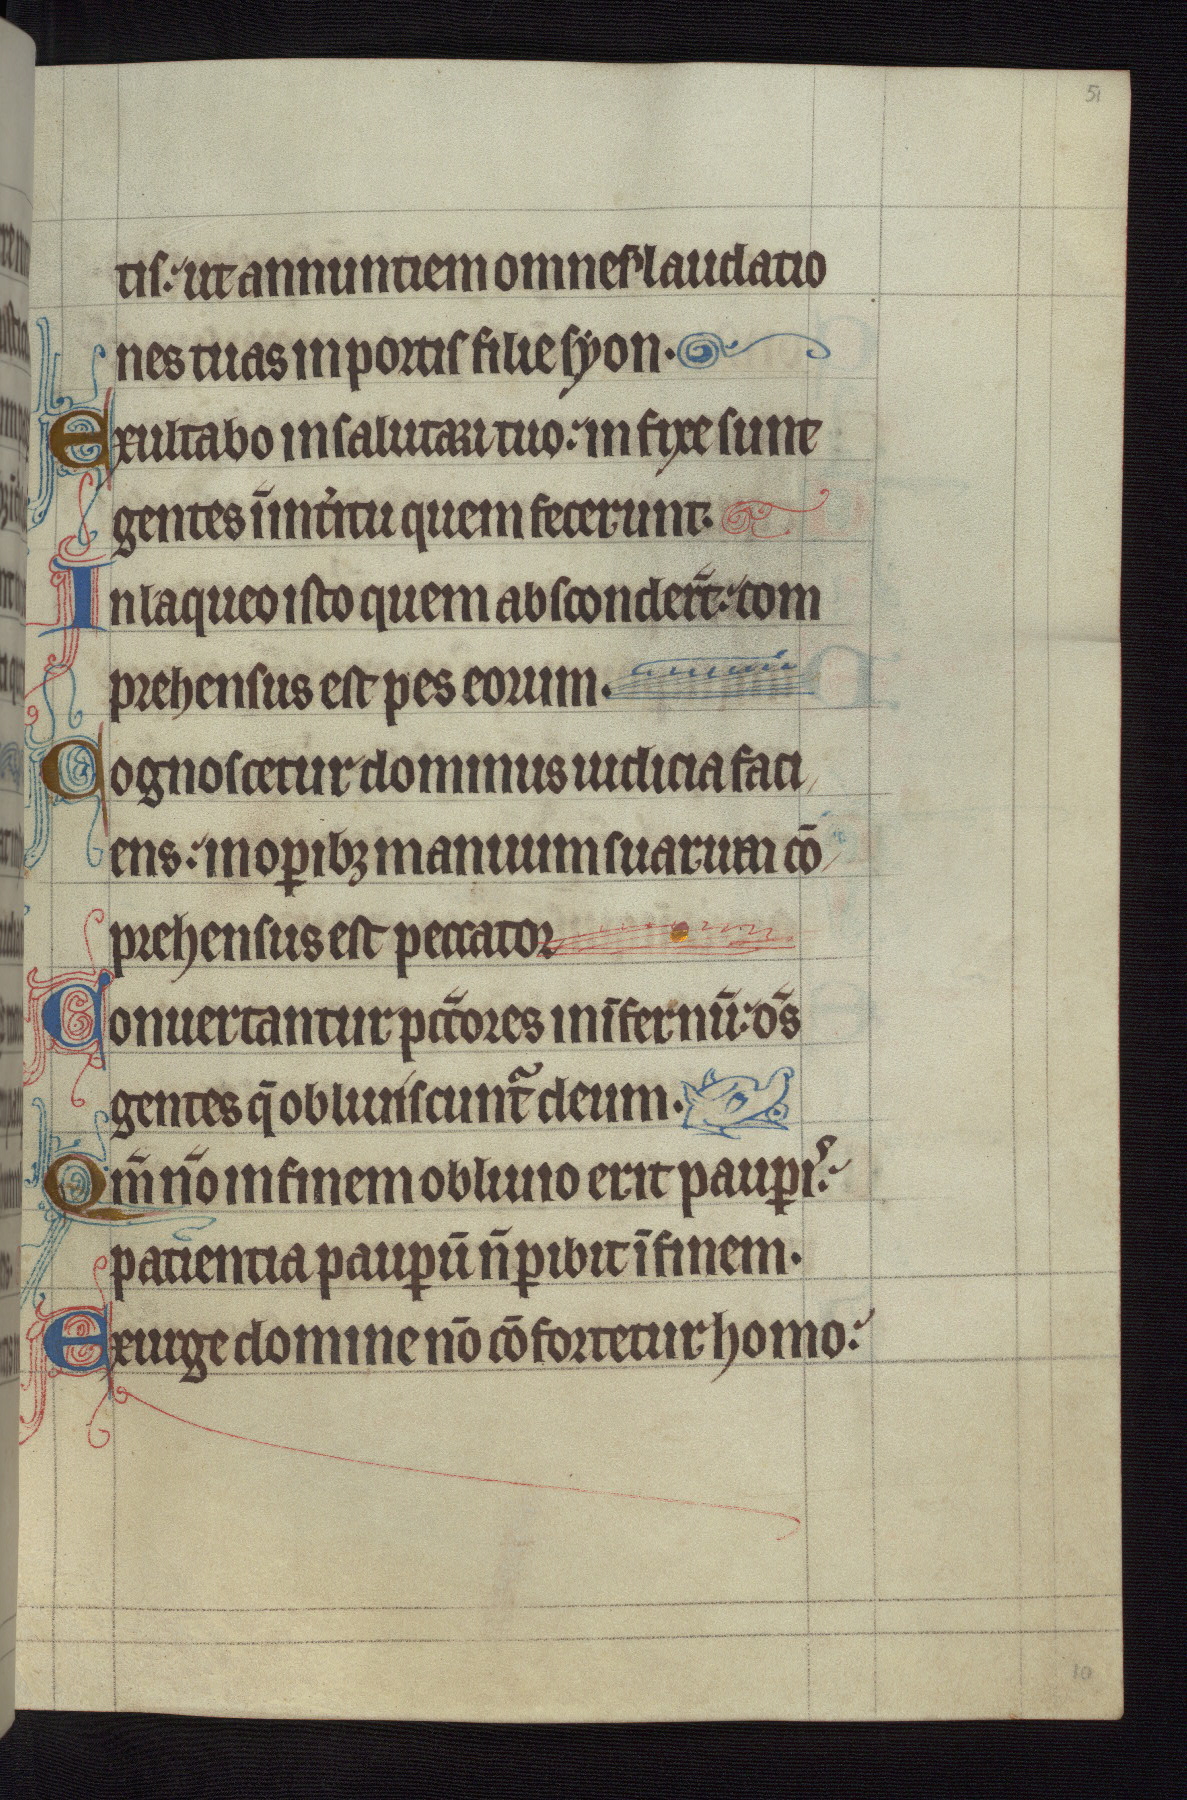 51
tis: ut annuntiem omnes laudatio
nes tuas in portis filie syon.
Exultabo in salutari tuo: in fixe sunt
gentes ūntͥitu quem fecerunt.
In laqueo isto quem absconder̄t: com
prehensus est pes eorum.
Cognoscetur dominus iudicia faci
ens: in oꝑibꝫ manuum suarum cō
prehensus est peccator
Conuertantur pct̄ores in īfernū: om̄s
gentes q̄ obliuiscunt᷑ deum.
Qm̄ nō in finem obliuio erit pauꝑis:
patientia pauꝑū n̄ ꝑibit ī finem.
Exurge domine nō cōfortetur homo:
10